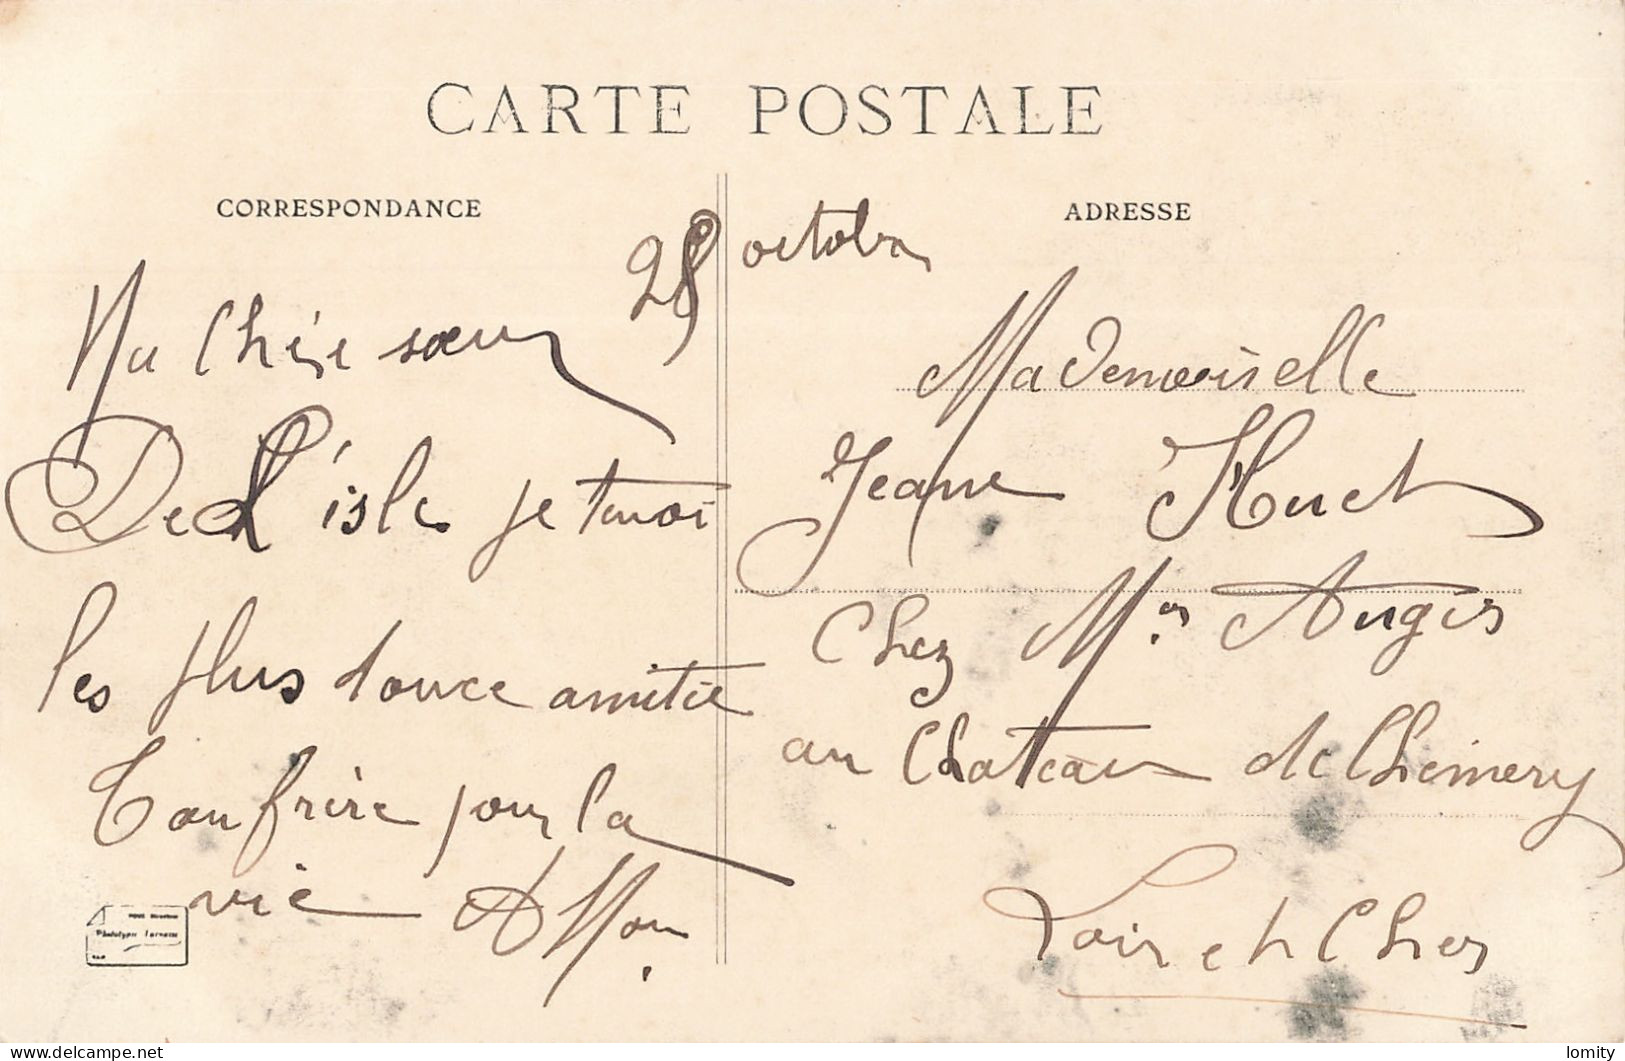 CARTE POSTALE
CORRESPONDANCE
ADRESSE
28 octobre
Ma Chère sœur
De L'isle je t'envoi
les plus douce amitie
Ton frère pour la
vie
Mademoiselle
Jeanne Huet
Chez Mr Augis
au Chateau de Chémery
Loir et Cher
Phototypie
lomity